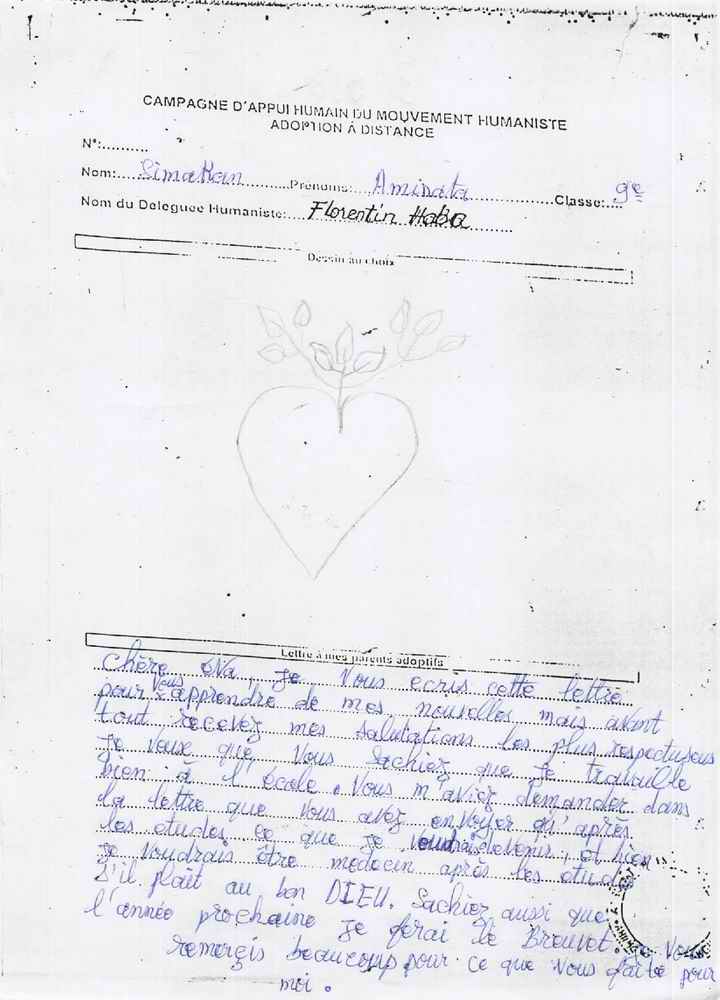 CAMPAGNE D'APPUI HUMAIN DU MOUVEMENT HUMANISTE
ADOPTION À DISTANCE
N°:.........
Nom:....Simakan..........Prénoms:....Aminata.................Classe:....9e
Nom du Deleguee Humaniste:....Florentin Haba............
Dessin au choix
Lettre à mes parents adoptifs
Chère eva, je vous ecris cette lettre
pour vous apprendre de mes nouvelles mais avant
tout recevez mes salutations les plus respectueus
je veux que vous sachiez que je travaille
bien à l'école. Vous m'aviez demander dans
la lettre que vous avez envoyer qu'après
les études ce que je voudrais devenir, et bien
je voudrais être medecin après les études
s'il plait au bon DIEU. Sachiez aussi que
l'année prochaine je ferai le Brevet. Vous
remerçis beaucoup pour ce que vous faite pour
moi.